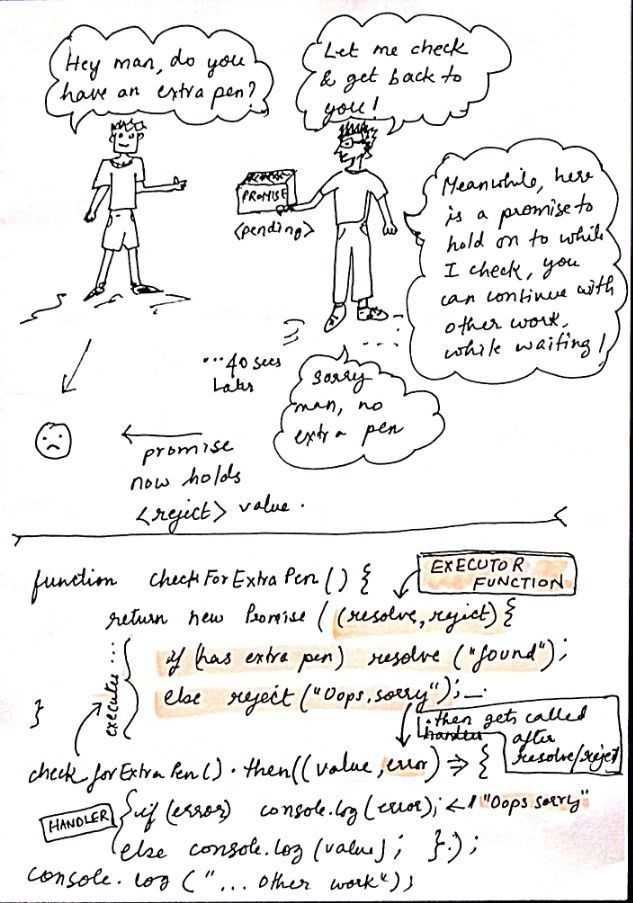 Hey man, do you
have an extra pen?
Let me check
& get back to
you!
PROMISE
<pending>
Meanwhile, here
is a promise to
hold on to while
I check, you
can continue with
other work,
while waiting!
...40 secs
Later
sorry
man, no
extra pen
promise
now holds
<reject> value.
function checkForExtraPen() {
EXECUTOR
FUNCTION
return new Promise ( (resolve, reject) {
if (has extra pen) resolve ("found");
else reject ("Oops, sorry");
}
executes ...
.then gets called
after
resolve/reject
check forExtraPen().then((value, error) => {
HANDLER
if (error) console.log (error); ← "Oops sorry"
else console.log (value); }.);
console.log ("... other work");